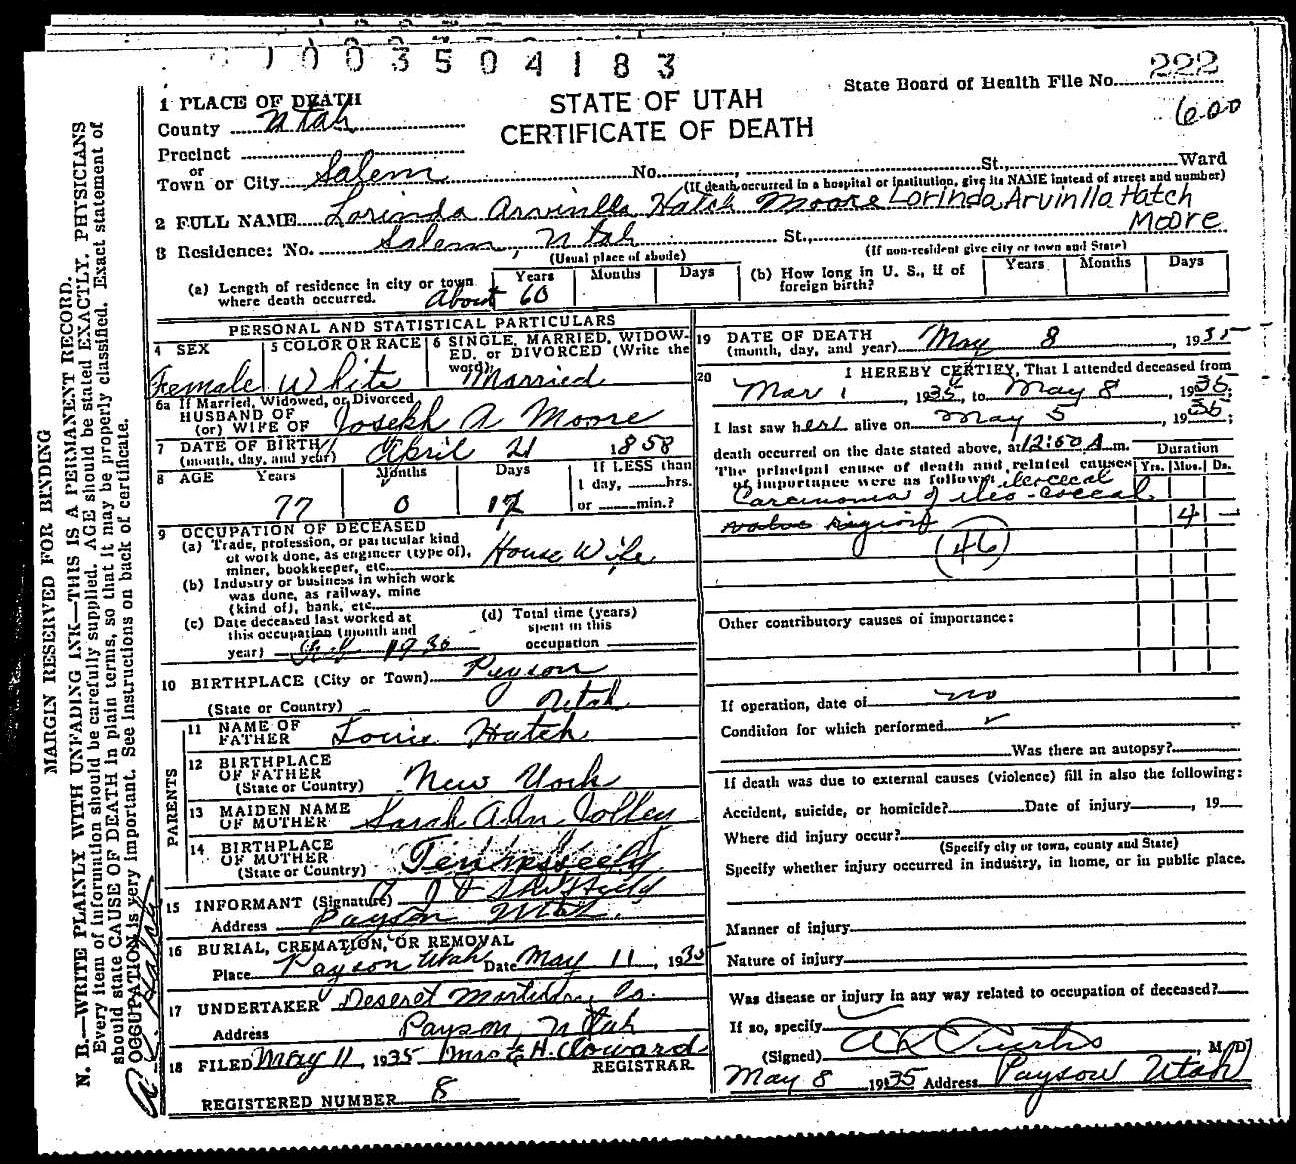 1003504183
222
State Board of Health File No.
600
STATE OF UTAH
CERTIFICATE OF DEATH
1 PLACE OF DEATH
County Utah
Precinct
or
Town or City Salem No. St., Ward
(If death occurred in a hospital or institution, give its NAME instead of street and number)
2 FULL NAME Lorinda Arvinlla Hatch Moore Lorinda Arvinlla Hatch
Moore
3 Residence: No. Salem, Utah St.,
(Usual place of abode) (If non-resident give city or town and State)
(a) Length of residence in city or town where death occurred. About 60 Years Months Days
(b) How long in U. S., if of foreign birth? Years Months Days
PERSONAL AND STATISTICAL PARTICULARS
4 SEX Female
5 COLOR OR RACE White
6 SINGLE, MARRIED, WIDOWED, or DIVORCED (Write the word) Married
6a If Married, Widowed, or Divorced
HUSBAND OF
(or) WIFE OF Joseph A Moore
7 DATE OF BIRTH
(month, day, and year) April 21 1858
8 AGE Years Months Days If LESS than
1 day, hrs.
77 0 17 or min.?
9 OCCUPATION OF DECEASED
(a) Trade, profession, or particular kind
of work done, as engineer (type of),
miner, bookkeeper, etc. House Wife
(b) Industry or business in which work
was done, as railway, mine
(kind of), bank, etc.
(c) Date deceased last worked at
this occupation (month and
year) 1930
(d) Total time (years)
spent in this
occupation
10 BIRTHPLACE (City or Town) Payson
(State or Country) Utah
PARENTS
11 NAME OF
FATHER Louis Hatch
12 BIRTHPLACE
OF FATHER
(State or Country) New York
13 MAIDEN NAME
OF MOTHER Sarah Ann Jolley
14 BIRTHPLACE
OF MOTHER
(State or Country)
15 INFORMANT (Signature)
Address Payson Utah.
16 BURIAL, CREMATION, OR REMOVAL
Place Payson Utah Date May 11, 1935
17 UNDERTAKER Deseret Mortuary Co.
Address Payson, Utah
18 FILED May 11, 1935 Howard
REGISTRAR
REGISTERED NUMBER 8
19 DATE OF DEATH
(month, day, and year) May 8, 1935
20 I HEREBY CERTIFY, That I attended deceased from
Mar 1, 1935, to May 8, 1935.
I last saw her alive on May 5, 1935;
death occurred on the date stated above, at 12:50 A m.
The principal cause of death and related causes
of importance were as follows: Ileocecal
Duration
Yrs. Mos. Ds.
Carcinoma of ileo-coecal
valve region 4 —
(46)
Other contributory causes of importance:
If operation, date of no
Condition for which performed
Was there an autopsy?
If death was due to external causes (violence) fill in also the following:
Accident, suicide, or homicide? Date of injury , 19
Where did injury occur?
(Specify city or town, county and State)
Specify whether injury occurred in industry, in home, or in public place.
Manner of injury
Nature of injury
Was disease or injury in any way related to occupation of deceased?
If so, specify
(Signed) A L Curtis, M. D.
May 8 1935 Address Payson Utah
MARGIN RESERVED FOR BINDING
N. B.—WRITE PLAINLY WITH UNFADING INK—THIS IS A PERMANENT RECORD.
Every item of information should be carefully supplied. AGE should be stated EXACTLY. PHYSICIANS
should state CAUSE OF DEATH in plain terms, so that it may be properly classified. Exact statement of
OCCUPATION is very important. See instructions on back of certificate.